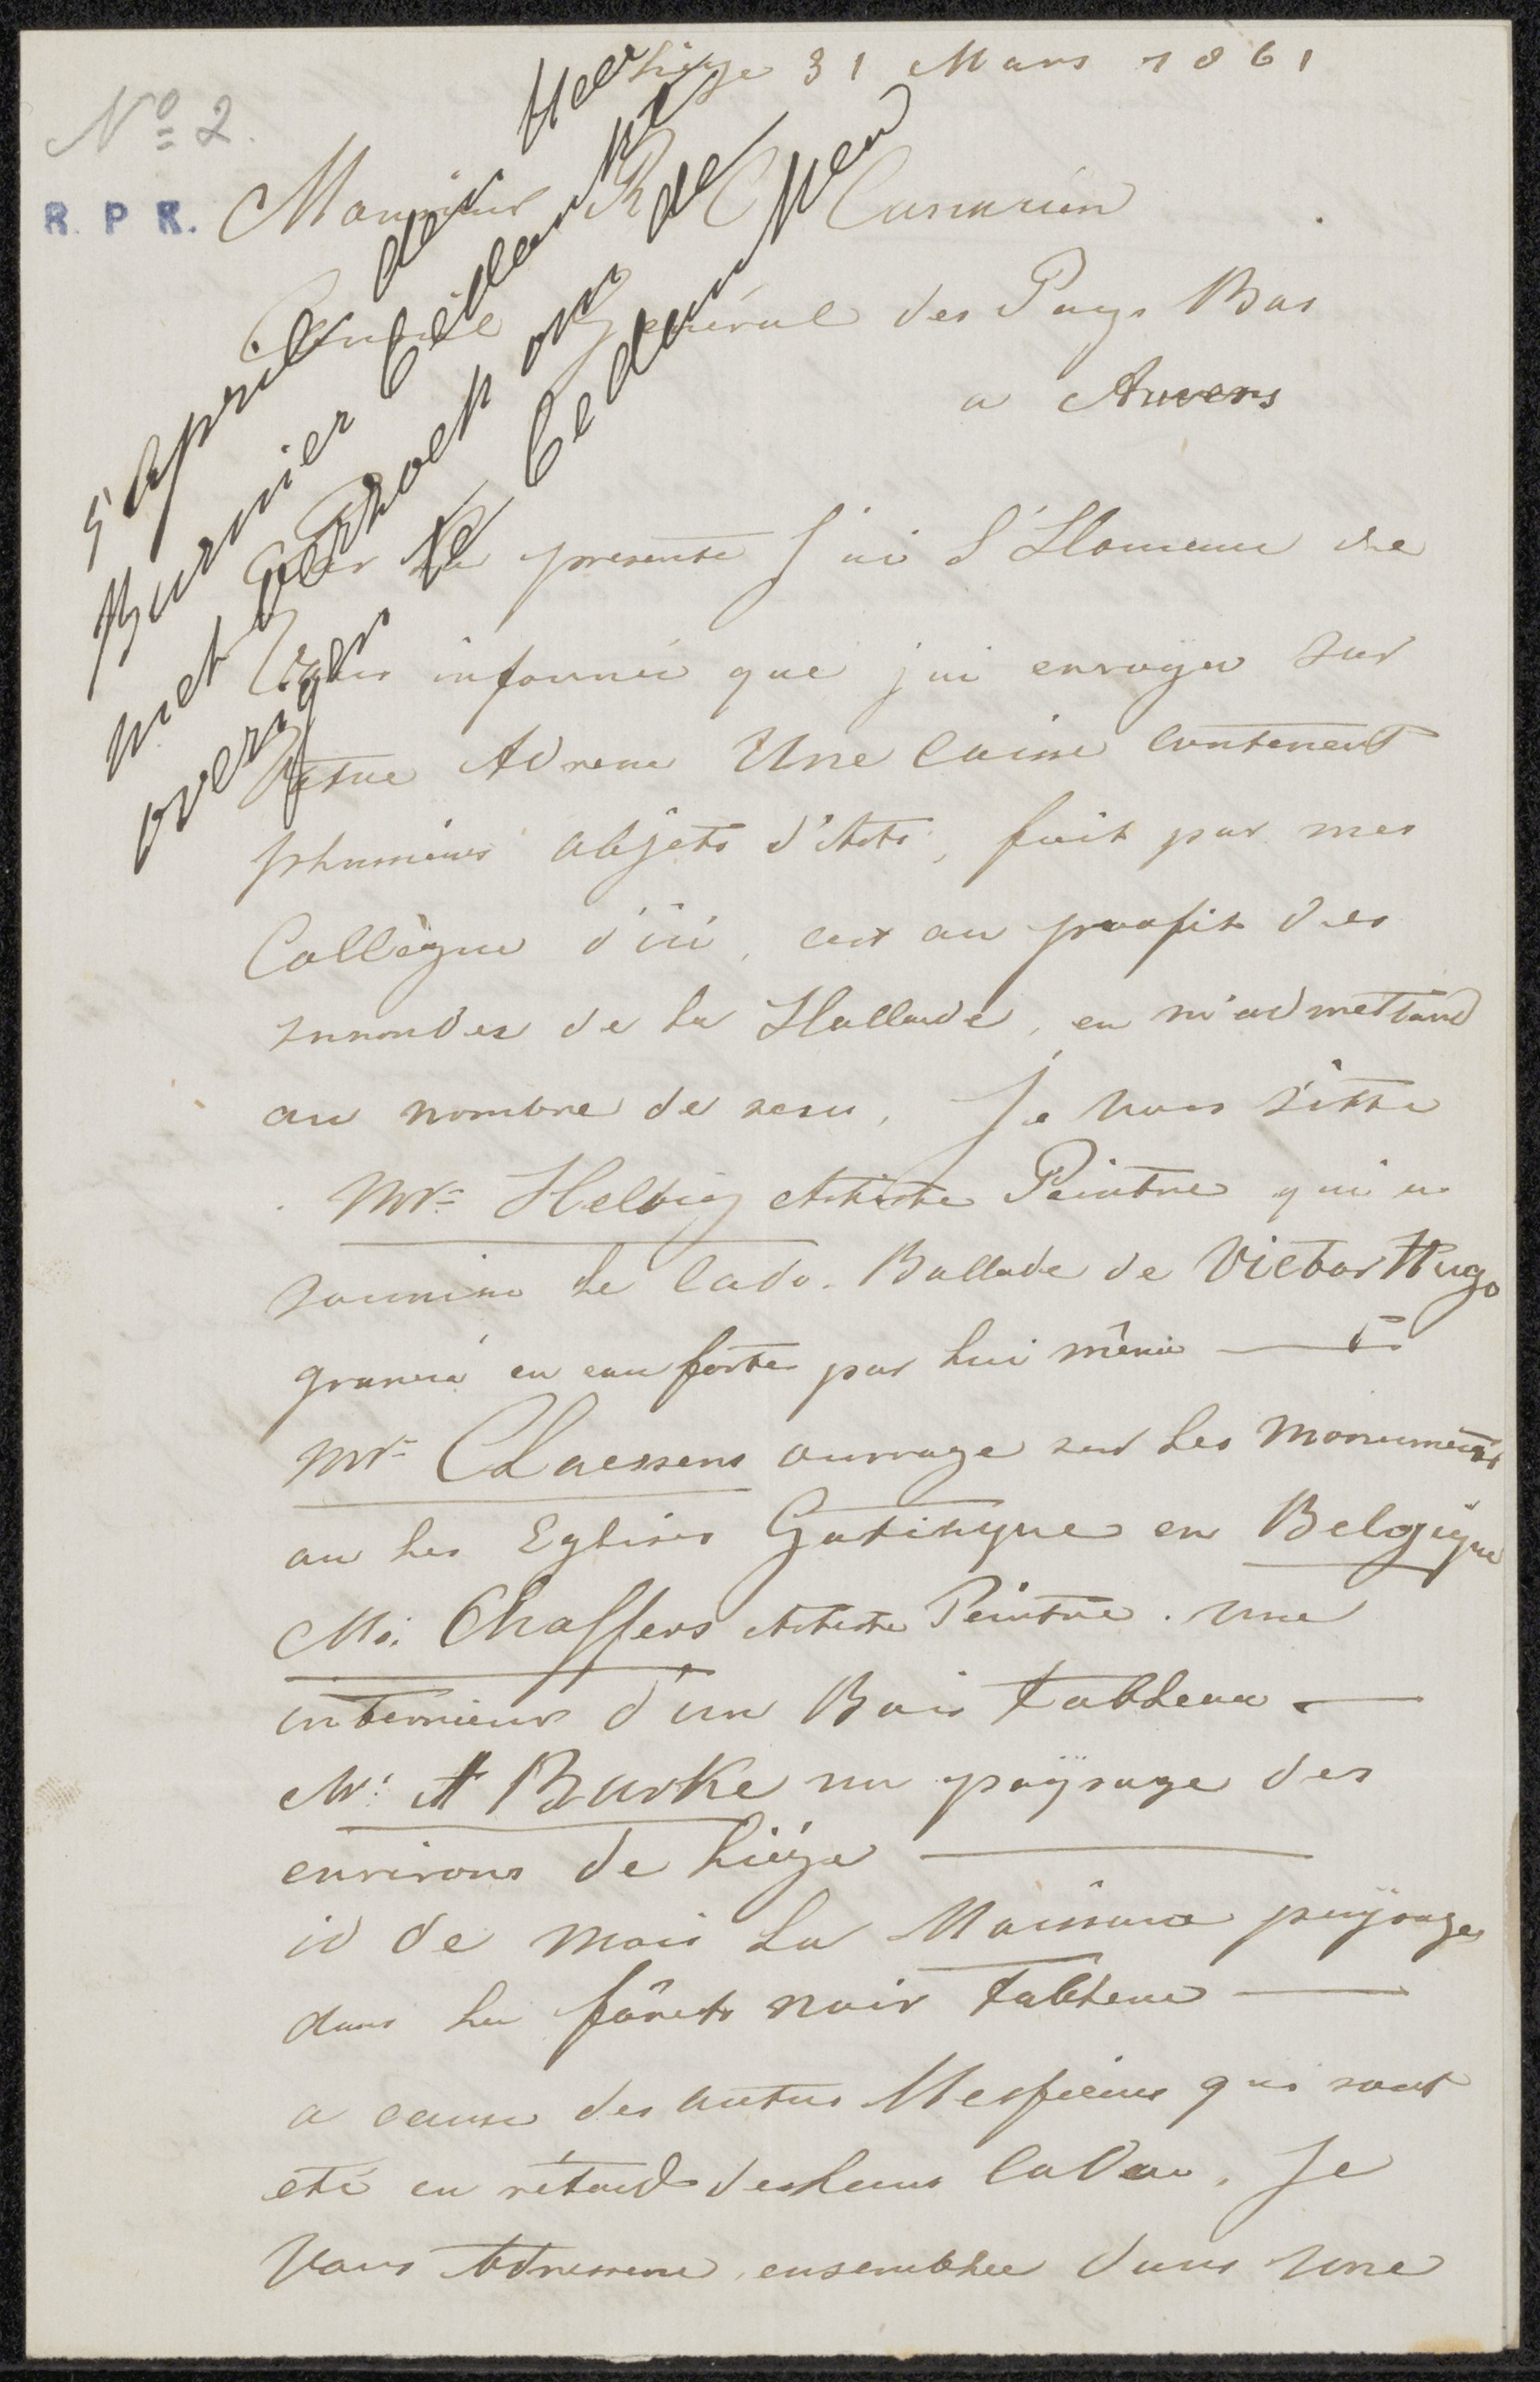 Liège 31 Mars 1861
No 2.
R. P. K.
Monsieur R C Cunarien
Consule Général des Pays Bas
a Anvers
5 April den Heer
Burnier bedankt
met verzoek om de
overigen te bedanken
Par la presente J'ai l'Honneur de
Vous informér que j'ai envoyer sur
Votre Adresse Une Caisse Contenent
phusieurs objets d'Arts, fait par mes
Collègue d'ici, cest au proofit des
innondes de la Hollande, en m'admettand
au nombre de ceau, Je vous sitte
Mr. Helbig Artiste Peintre qui a
soumise le Cado. Ballade de Victor Hugo
gravéa en eau fortes par lui mêmé
Mr. Claessens ouvrage sur les Monuments
au les Eglises Gotihque en Belgique
Mr. Chaffers Artiste Peintre. une
interrieur d'un Bois tableau
Mr. A Burke un paÿsage des
environs de Liége
id de mois La Maisure paÿsage
dans la fôrets noir tableau
a cause des autres Messieurs qui sont
eté en rétard de leurs Cadau, Je
Vous Adressere ensemblee dans Une